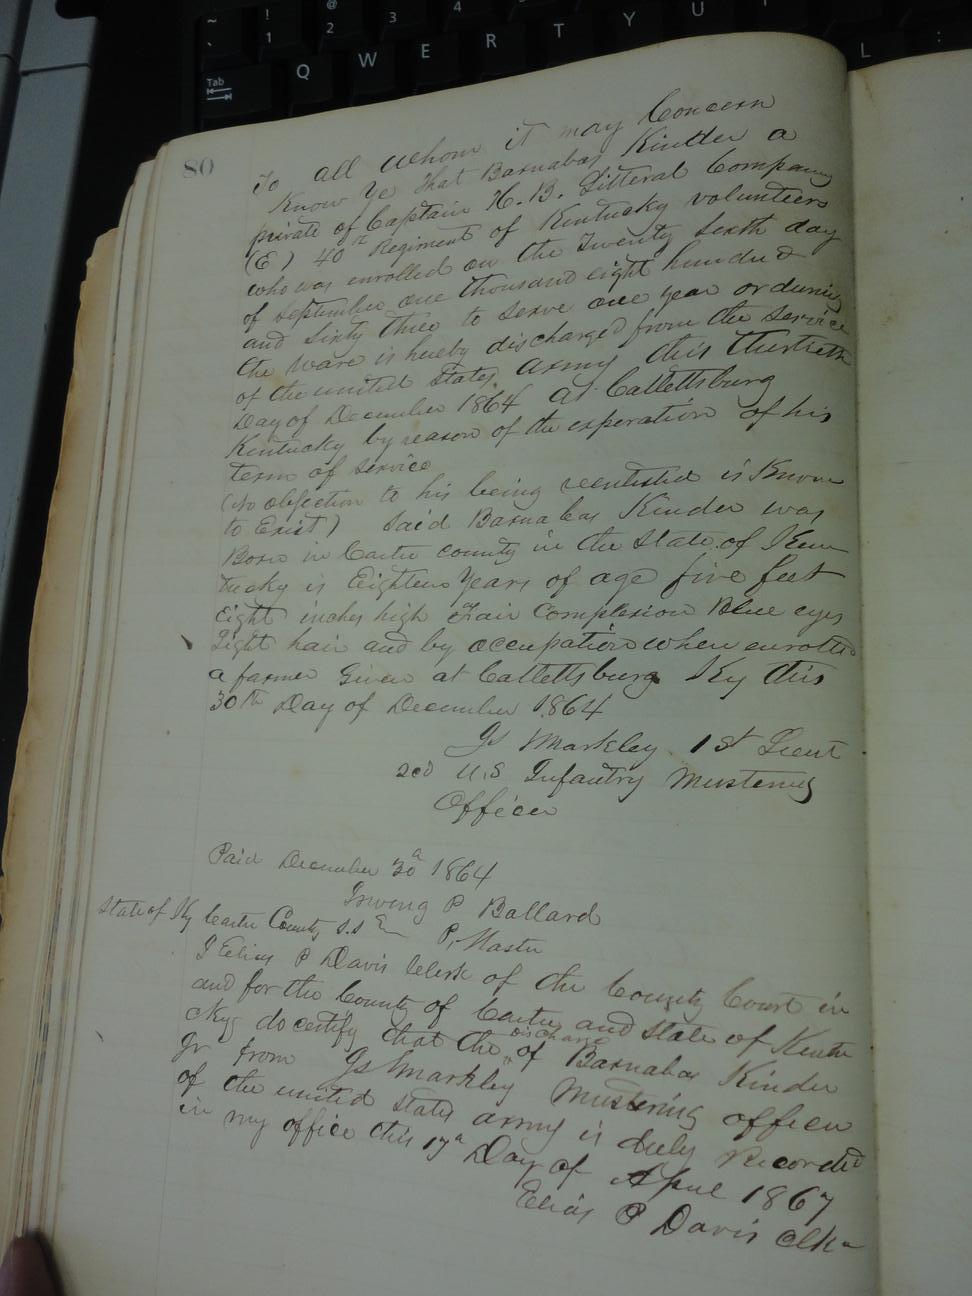 80
To all whom it may Concern
Know Ye that Barnabas Kinder a
private of Captain H. B. Litteral Company
(E) 40th Regiment of Kentucky volunteers
who was enrolled on the Twenty sexth day
of september one thousand eight hundred
and sixty three to serve one year or during
the ware is hereby discharged from the service
of the united States army this thirtieth
Day of December 1864 at Catlettsburg
Kentucky by reason of the experation of his
term of service
(No objection to his being reenlisted is Known
to Exist) Said Barnabas Kinder was
Born in Carter county in the State of Ken
tucky is Eighteen Years of age five feet
Eight inches high Fair Complexion Blue eyes
Light hair and by occupation when enrolled
a farmer Given at Catlettsburg Ky this
30th Day of December 1864
Js Markley 1st Lieut
2cd U.S Infantry Mustering
Officer
Paid December 30th 1864
Irwing P Ballard
P. Master
State of Ky Carter County S.S
I Elias P Davis Clerk of the County Court in
and for the County of Carter and State of Kentu
cky do certify that the discharge of Barnabas Kinder
Jr from Js Markley Mustering officer
of the united States army is duly Recorded
in my office this 17th Day of April 1867
Elias P Davis Clk